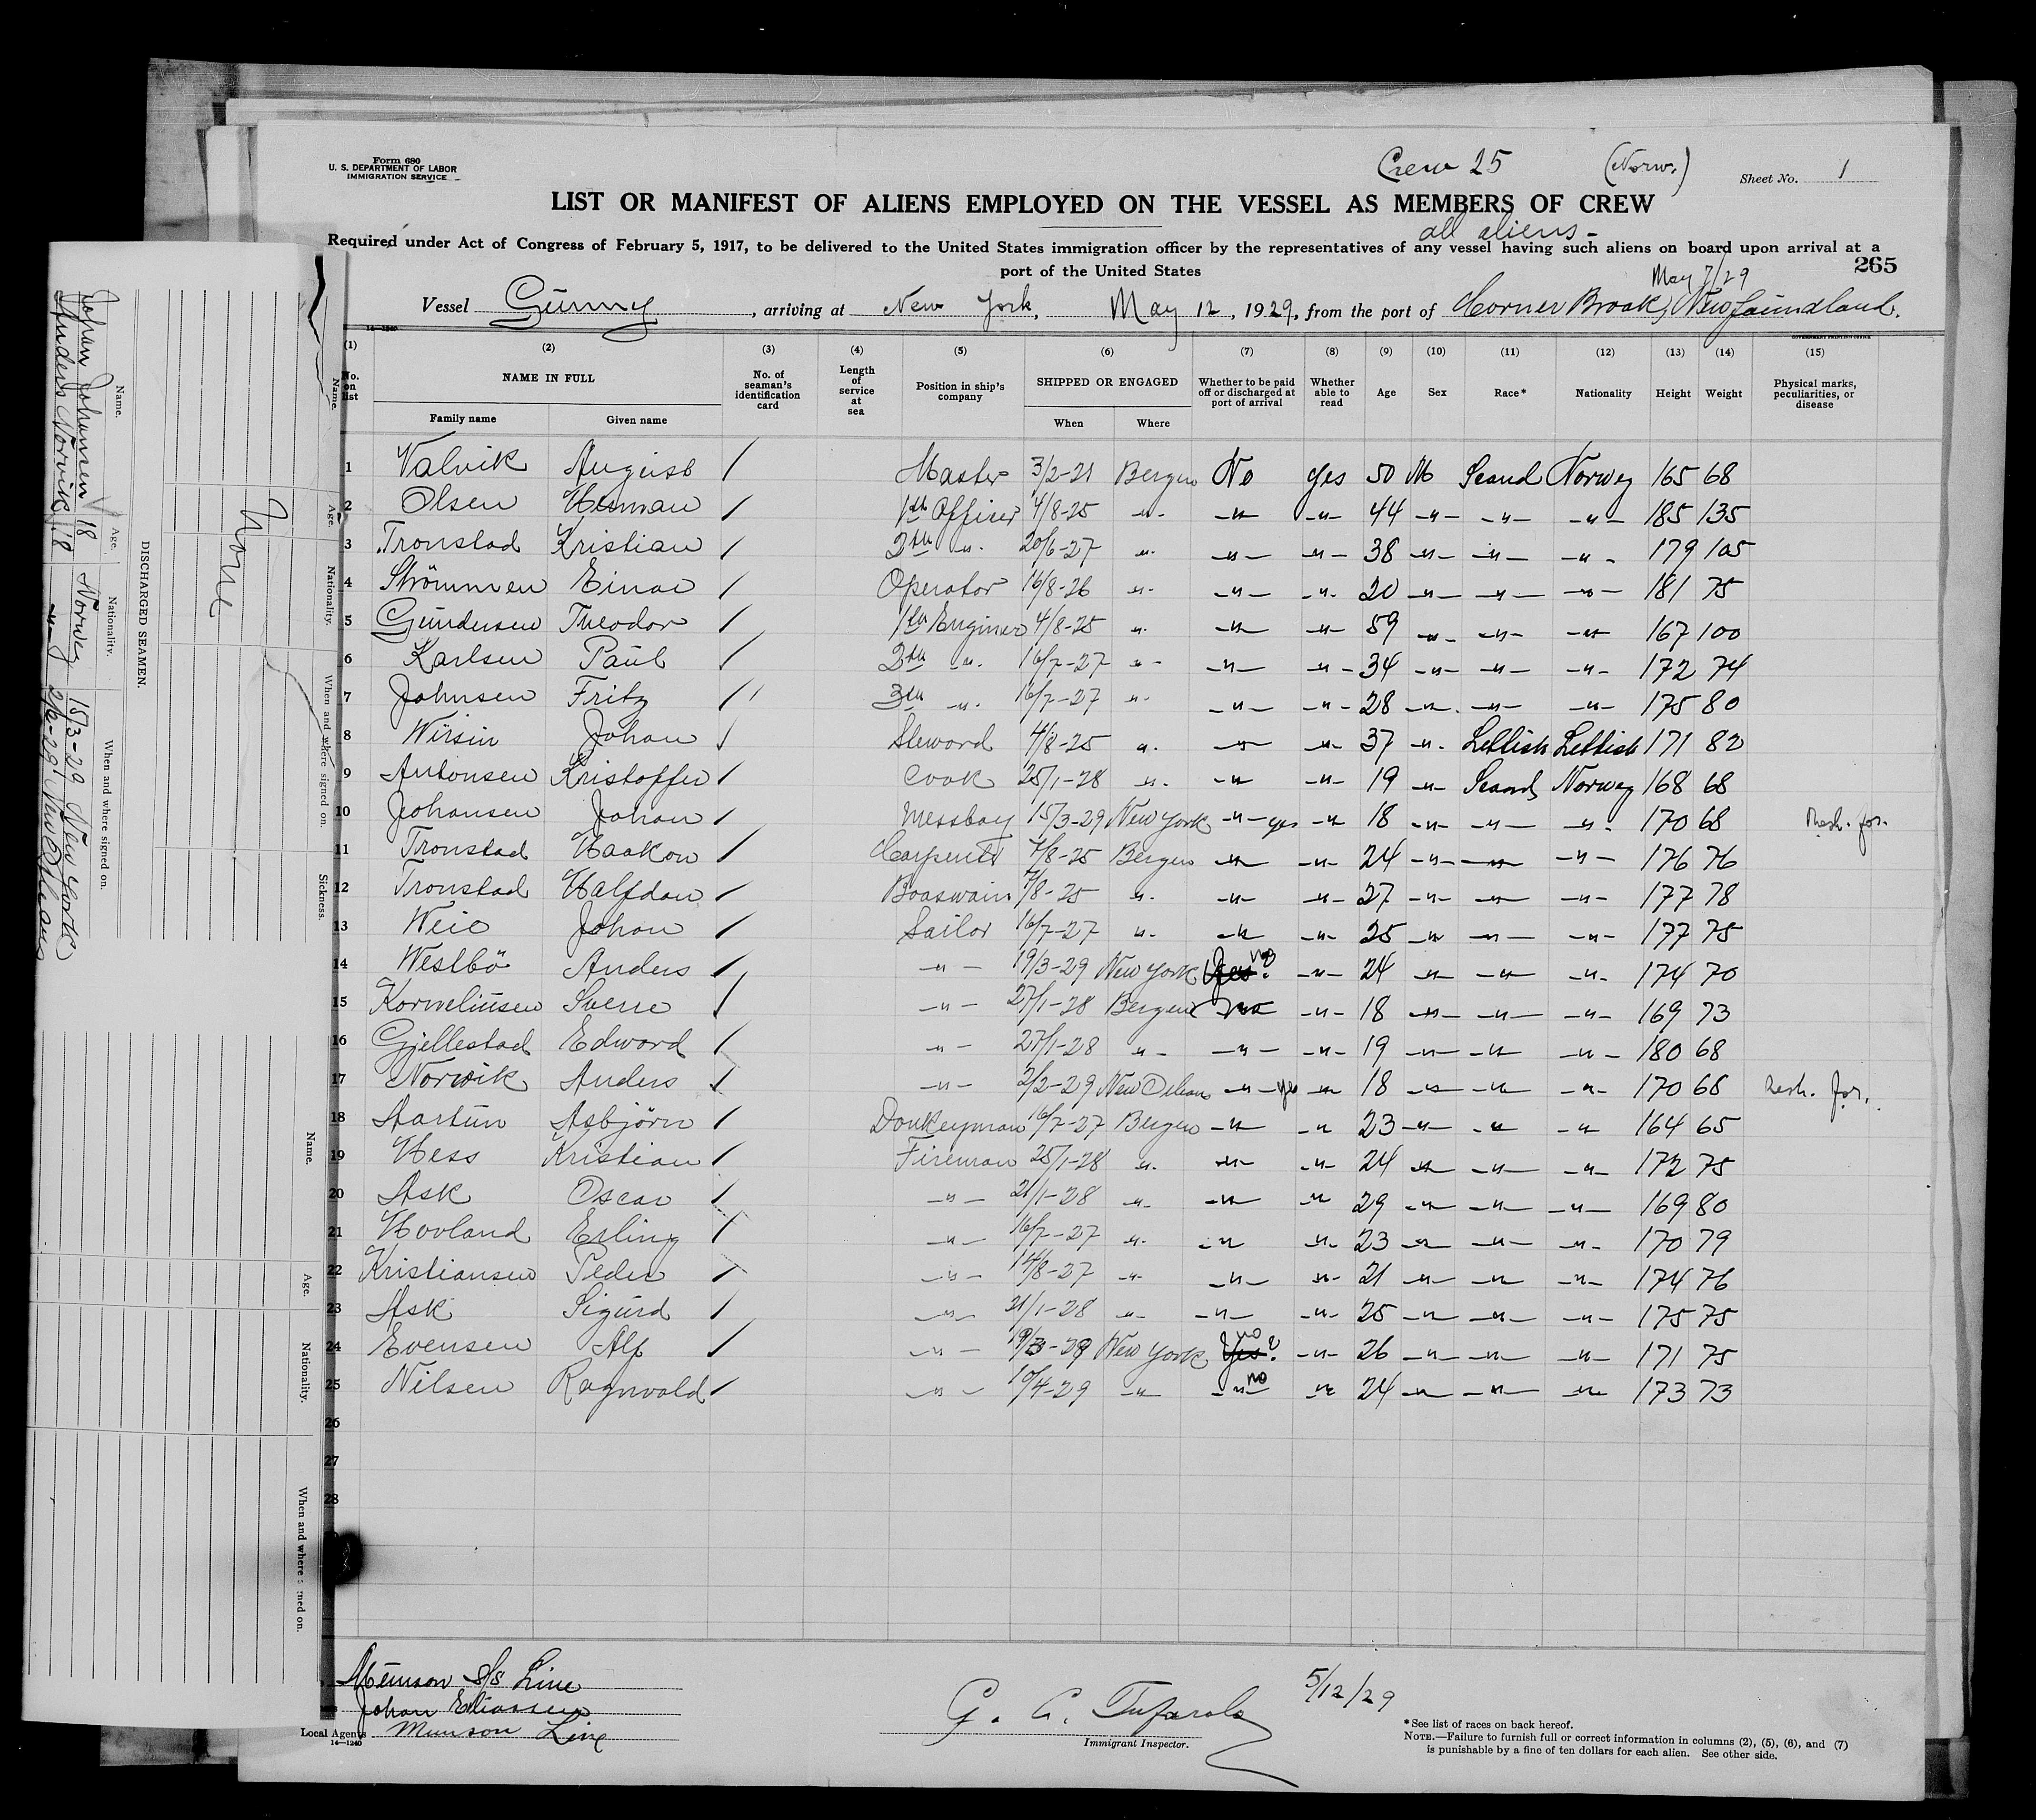 Form 680
U. S. DEPARTMENT OF LABOR
IMMIGRATION SERVICE
Crew 25 (Norw.)
Sheet No. 1
LIST OR MANIFEST OF ALIENS EMPLOYED ON THE VESSEL AS MEMBERS OF CREW
all aliens -
Required under Act of Congress of February 5, 1917, to be delivered to the United States immigration officer by the representatives of any vessel having such aliens on board upon arrival at a
port of the United States
May 7/29
265
Vessel Gunny, arriving at New York, May 12, 1929, from the port of Corner Brook, Newfoundland.
14—1240
GOVERNMENT PRINTING OFFICE
(1) (2) (3) (4) (5) (6) (7) (8) (9) (10) (11) (12) (13) (14) (15)
No. on list NAME IN FULL Family name Given name No. of seaman's identification card Length of service at sea Position in ship's company SHIPPED OR ENGAGED When Where Whether to be paid off or discharged at port of arrival Whether able to read Age Sex Race* Nationality Height Weight Physical marks, peculiarities, or disease
1 Valvik August / Master 3/2-21 Bergen No yes 50 M Scand Norweg 165 68
2 Olsen Herman / 1st Officer 4/8-25 -"- -"- -"- 44 -"- -"- -"- 185 135
3 Tronstad Kristian / 2th -"- 20/6-27 -"- -"- -"- 38 -"- -"- -"- 179 105
4 Strömmen Einar / Operator 16/8-26 -"- -"- -"- 20 -"- -"- -"- 181 75
5 Gundersen Theodor / 1th Enginer 4/8-25 -"- -"- -"- 59 -"- -"- -"- 167 100
6 Karlsen Paul / 2th -"- 16/7-27 -"- -"- -"- 34 -"- -"- -"- 172 74
7 Johnsen Fritz / 3th -"- 16/7-27 -"- -"- -"- 28 -"- -"- -"- 175 80
8 Wirsin Johan / Steward 4/8-25 -"- -"- -"- 37 -"- Lettish Lettish 171 82
9 Antonsen Kristoffer / Cook 25/1-28 -"- -"- -"- 19 -"- Scand Norweg 168 68
10 Johansen Johan / Messboy 15/3-29 New York -"- yes -"- 18 -"- -"- -"- 170 68
11 Tronstad Haakon / Carpenter 4/8-25 Bergen -"- -"- 24 -"- -"- -"- 176 76
12 Tronstad Halfdan / Boaswain 4/8-25 -"- -"- -"- 27 -"- -"- -"- 177 78
13 Weie Johan / Sailor 16/7-27 -"- -"- -"- 25 -"- -"- -"- 177 75
14 Westbö Anders / -"- 19/3-29 New York Yes. no -"- 24 -"- -"- -"- 174 70
15 Korneliusen Sverre / -"- 27/1-28 Bergen no -"- 18 -"- -"- -"- 169 73
16 Gjellestad Edward / -"- 27/1-28 -"- -"- -"- 19 -"- -"- -"- 180 68
17 Norvik Anders / -"- 2/2-29 New Orleans -"- yes -"- 18 -"- -"- -"- 170 68
18 Aartun Asbjörn / Donkeyman 16/7-27 Bergen -"- -"- 23 -"- -"- -"- 164 65
19 Hess Kristian / Fireman 25/1-28 -"- -"- -"- 24 -"- -"- -"- 172 75
20 Ask Oscar / -"- 21/1-28 -"- -"- -"- 29 -"- -"- -"- 169 80
21 Hovland Erling / -"- 16/7-27 -"- -"- -"- 23 -"- -"- -"- 170 79
22 Kristiansen Peder / -"- 14/8-27 -"- -"- -"- 21 -"- -"- -"- 174 76
23 Ask Sigurd / -"- 21/1-28 -"- -"- -"- 25 -"- -"- -"- 175 75
24 Evensen Alf / -"- 19/3-29 New York Yes. no -"- 26 -"- -"- -"- 171 75
25 Nilsen Ragnvald / -"- 10/4-29 -"- -"- no -"- 24 -"- -"- -"- 173 73
26
27
28
Munson S/s Line
Johan Eliassen
Local Agents Munson Line
14—1240
G. A. Tufarolo
Immigrant Inspector.
5/12/29
*See list of races on back hereof.
NOTE.—Failure to furnish full or correct information in columns (2), (5), (6), and (7)
is punishable by a fine of ten dollars for each alien. See other side.
Name. Age. Nationality. When and where signed on.
Johan Johansen 18 Norweg 15/3-29 New York
Anders Norvik 18 -"- 2/2-29 New Orleans
DISCHARGED SEAMEN.
None
Name. Age. Nationality. When and where signed on. Sickness.
Name. Age. Nationality. When and where signed on.